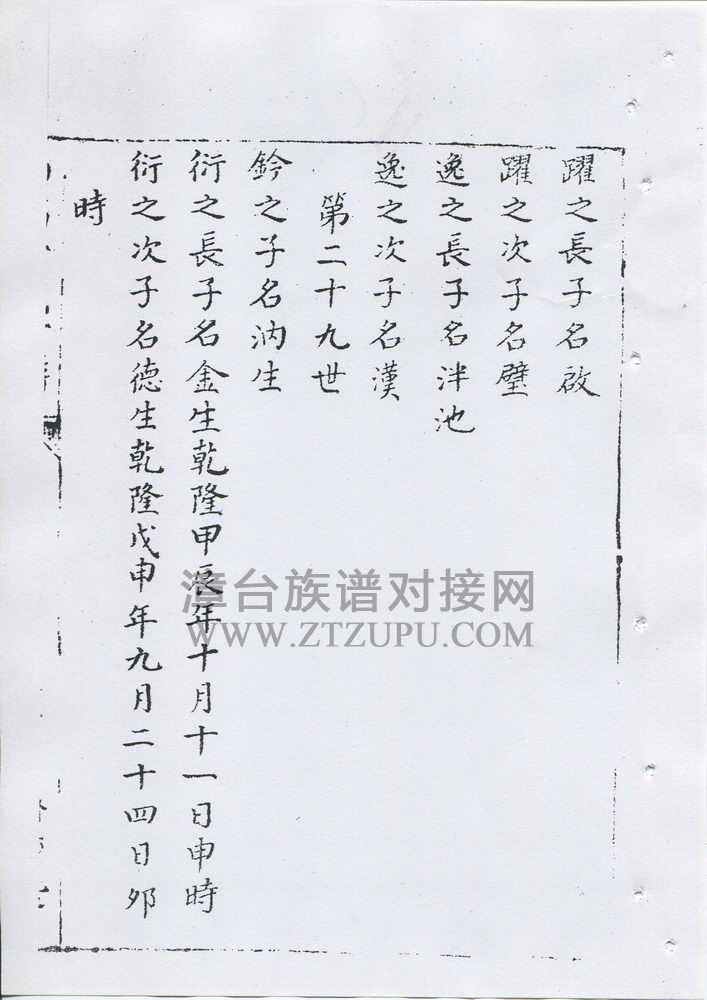 躍之長子名啟
躍之次子名璧
逸之長子名泮池
逸之次子名漢
第二十九世
鈐之子名汭生
衍之長子名金生乾隆甲辰年十月十一日申時
衍之次子名德生乾隆戊申年九月二十四日夘
時
漳台族谱对接网
WWW.ZTZUPU.COM